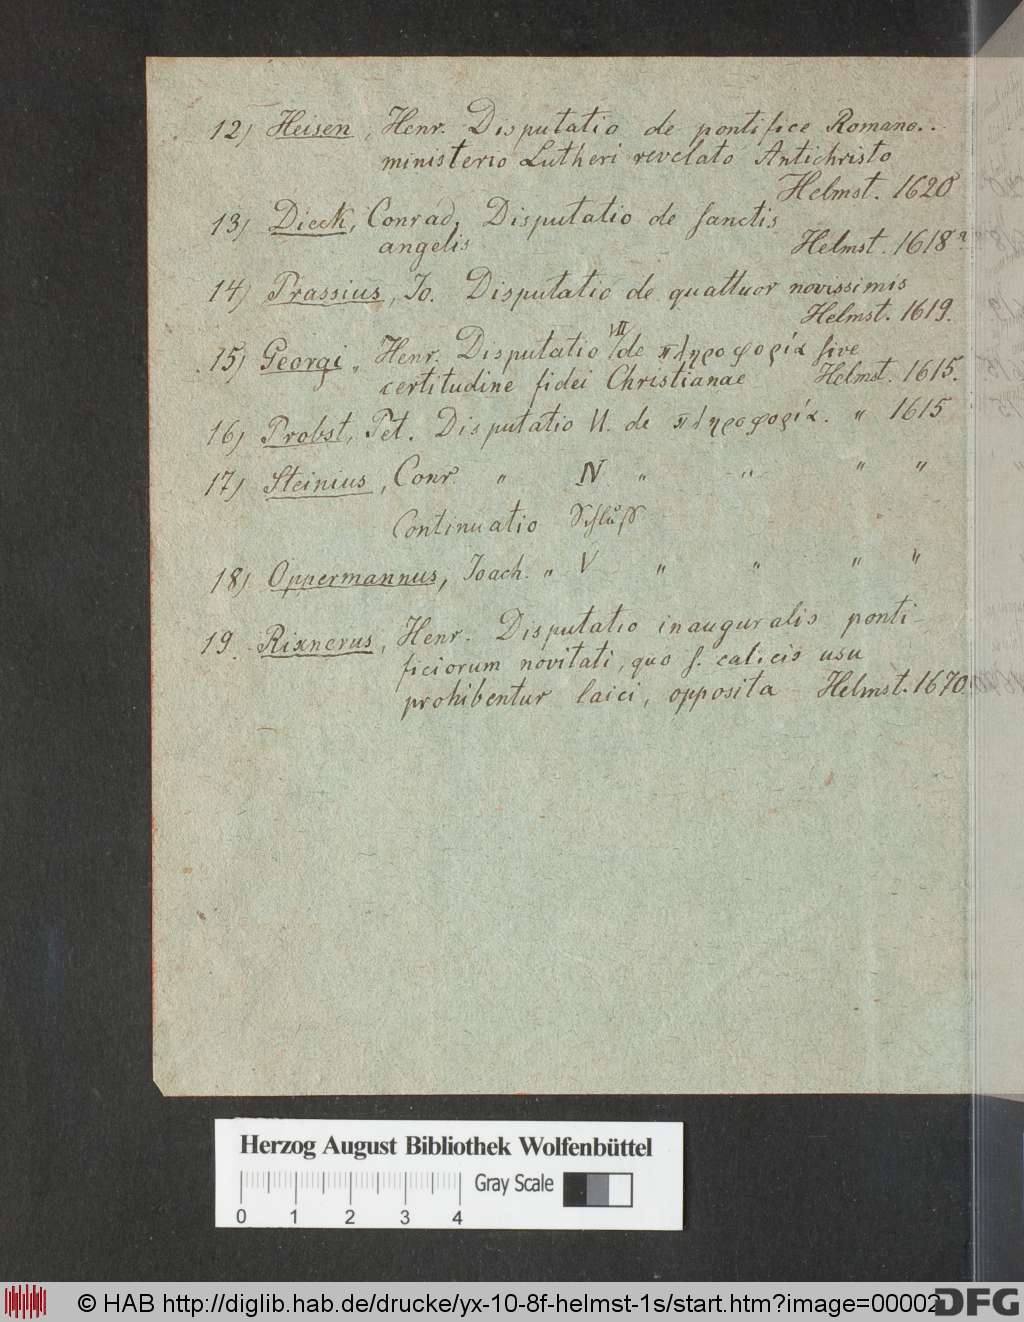 12) Heisen, Henr. Disputatio de pontifice Romano..
ministerio Lutheri revelato Antichristo
Helmst. 1620
13) Dieck, Conrad. Disputatio de sanctis
angelis Helmst. 1618
14) Prassius, Jo. Disputatio de quattuor novissimis
Helmst. 1619.
15) Georgi, Henr. Disputatio VII de πληροφορία sive
certitudine fidei Christianae Helmst. 1615.
16) Probst, Pet. Disputatio VI. de πληροφορία. " 1615
17) Steinius, Conr. " IV " " " "
Continuatio Schluß
18) Oppermannus, Joach. " V " " " "
19. Rixnerus, Henr. Disputatio inauguralis ponti-
ficiorum novitati, quo s. calicis usu
prohibentur laici, opposita Helmst. 1670.
Herzog August Bibliothek Wolfenbüttel
Gray Scale
0 1 2 3 4
© HAB http://diglib.hab.de/drucke/yx-10-8f-helmst-1s/start.htm?image=00002
DFG